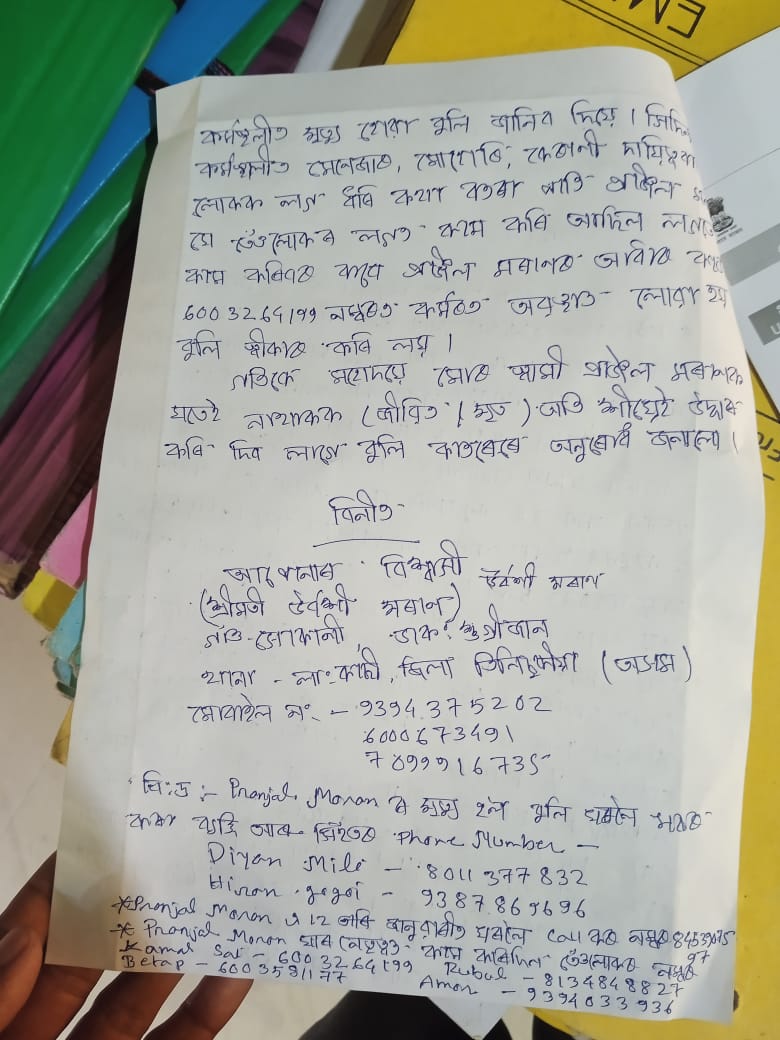 কৰ্মস্থলীত মৃত্যু হোৱা বুলি জানিব দিয়ে। সিদিন
কৰ্মস্থলীত মেনেজাৰ, কেৰাণী
লোকক লগ ধৰি কথা বতৰা পাতি প্ৰাঞ্জল
যে তেঁওলোকৰ লগত কাম কৰি আছিল লগতে
কাম কৰিবৰ বাবে প্ৰাঞ্জল মৰাণক
6003264199 নম্বৰত কৰ্মৰত অৱস্থাত লোৱা হয়
বুলি স্বীকাৰ কৰি লয়।
গতিকে মহোদয়ে মোৰ স্বামী প্ৰাঞ্জল মৰাণক
যতেই নাথাকক (জীৱিত / মৃত) অতি শীঘ্ৰেই উদ্ধাৰ
কৰি দিব লাগে বুলি কাতৰেৰে অনুৰোধ জনালো।
বিনীত
আপোনাৰ বিশ্বাসী উৰ্বশী মৰাণ
(শ্ৰীমতী উৰ্বশী মৰাণ)
গাঁও - ডাক:
থানা - জিলা তিনিচুকীয়া (অসম)
মোবাইল নং - 9394375202
6000673491
7099916735
বি:দ্ৰ:- Pranjal Moran ৰ মৃত্যু হ'ল বুলি ঘৰলৈ
কৰা ব্যক্তি আৰু সিহঁতৰ Phone Number -
Diyan Mili - 8011377832
Hiron gogoi - 9387869696
* Pranjal Moran এ 12 জানুৱাৰীত ঘৰলৈ Call কৰা নম্বৰ 84539075
97
* Pranjal Moran যাৰ নেতৃত্বত কাম কৰিছিল তেঁওলোকৰ নম্বৰ
Kamal Sar - 6003264199 Rubul - 8134848827
Betap - 6003591177 Amon - 9394033936